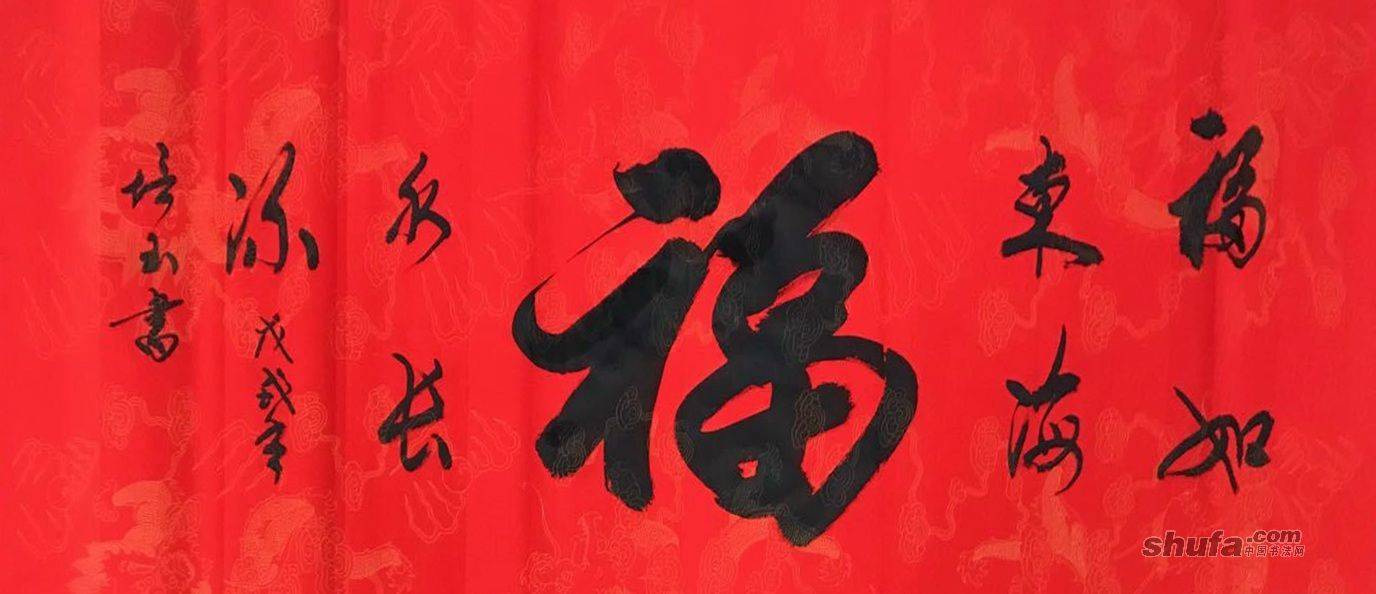 福如
東海
福
水長
流
戊戌年
培玉書
shufa.com
中国书法网